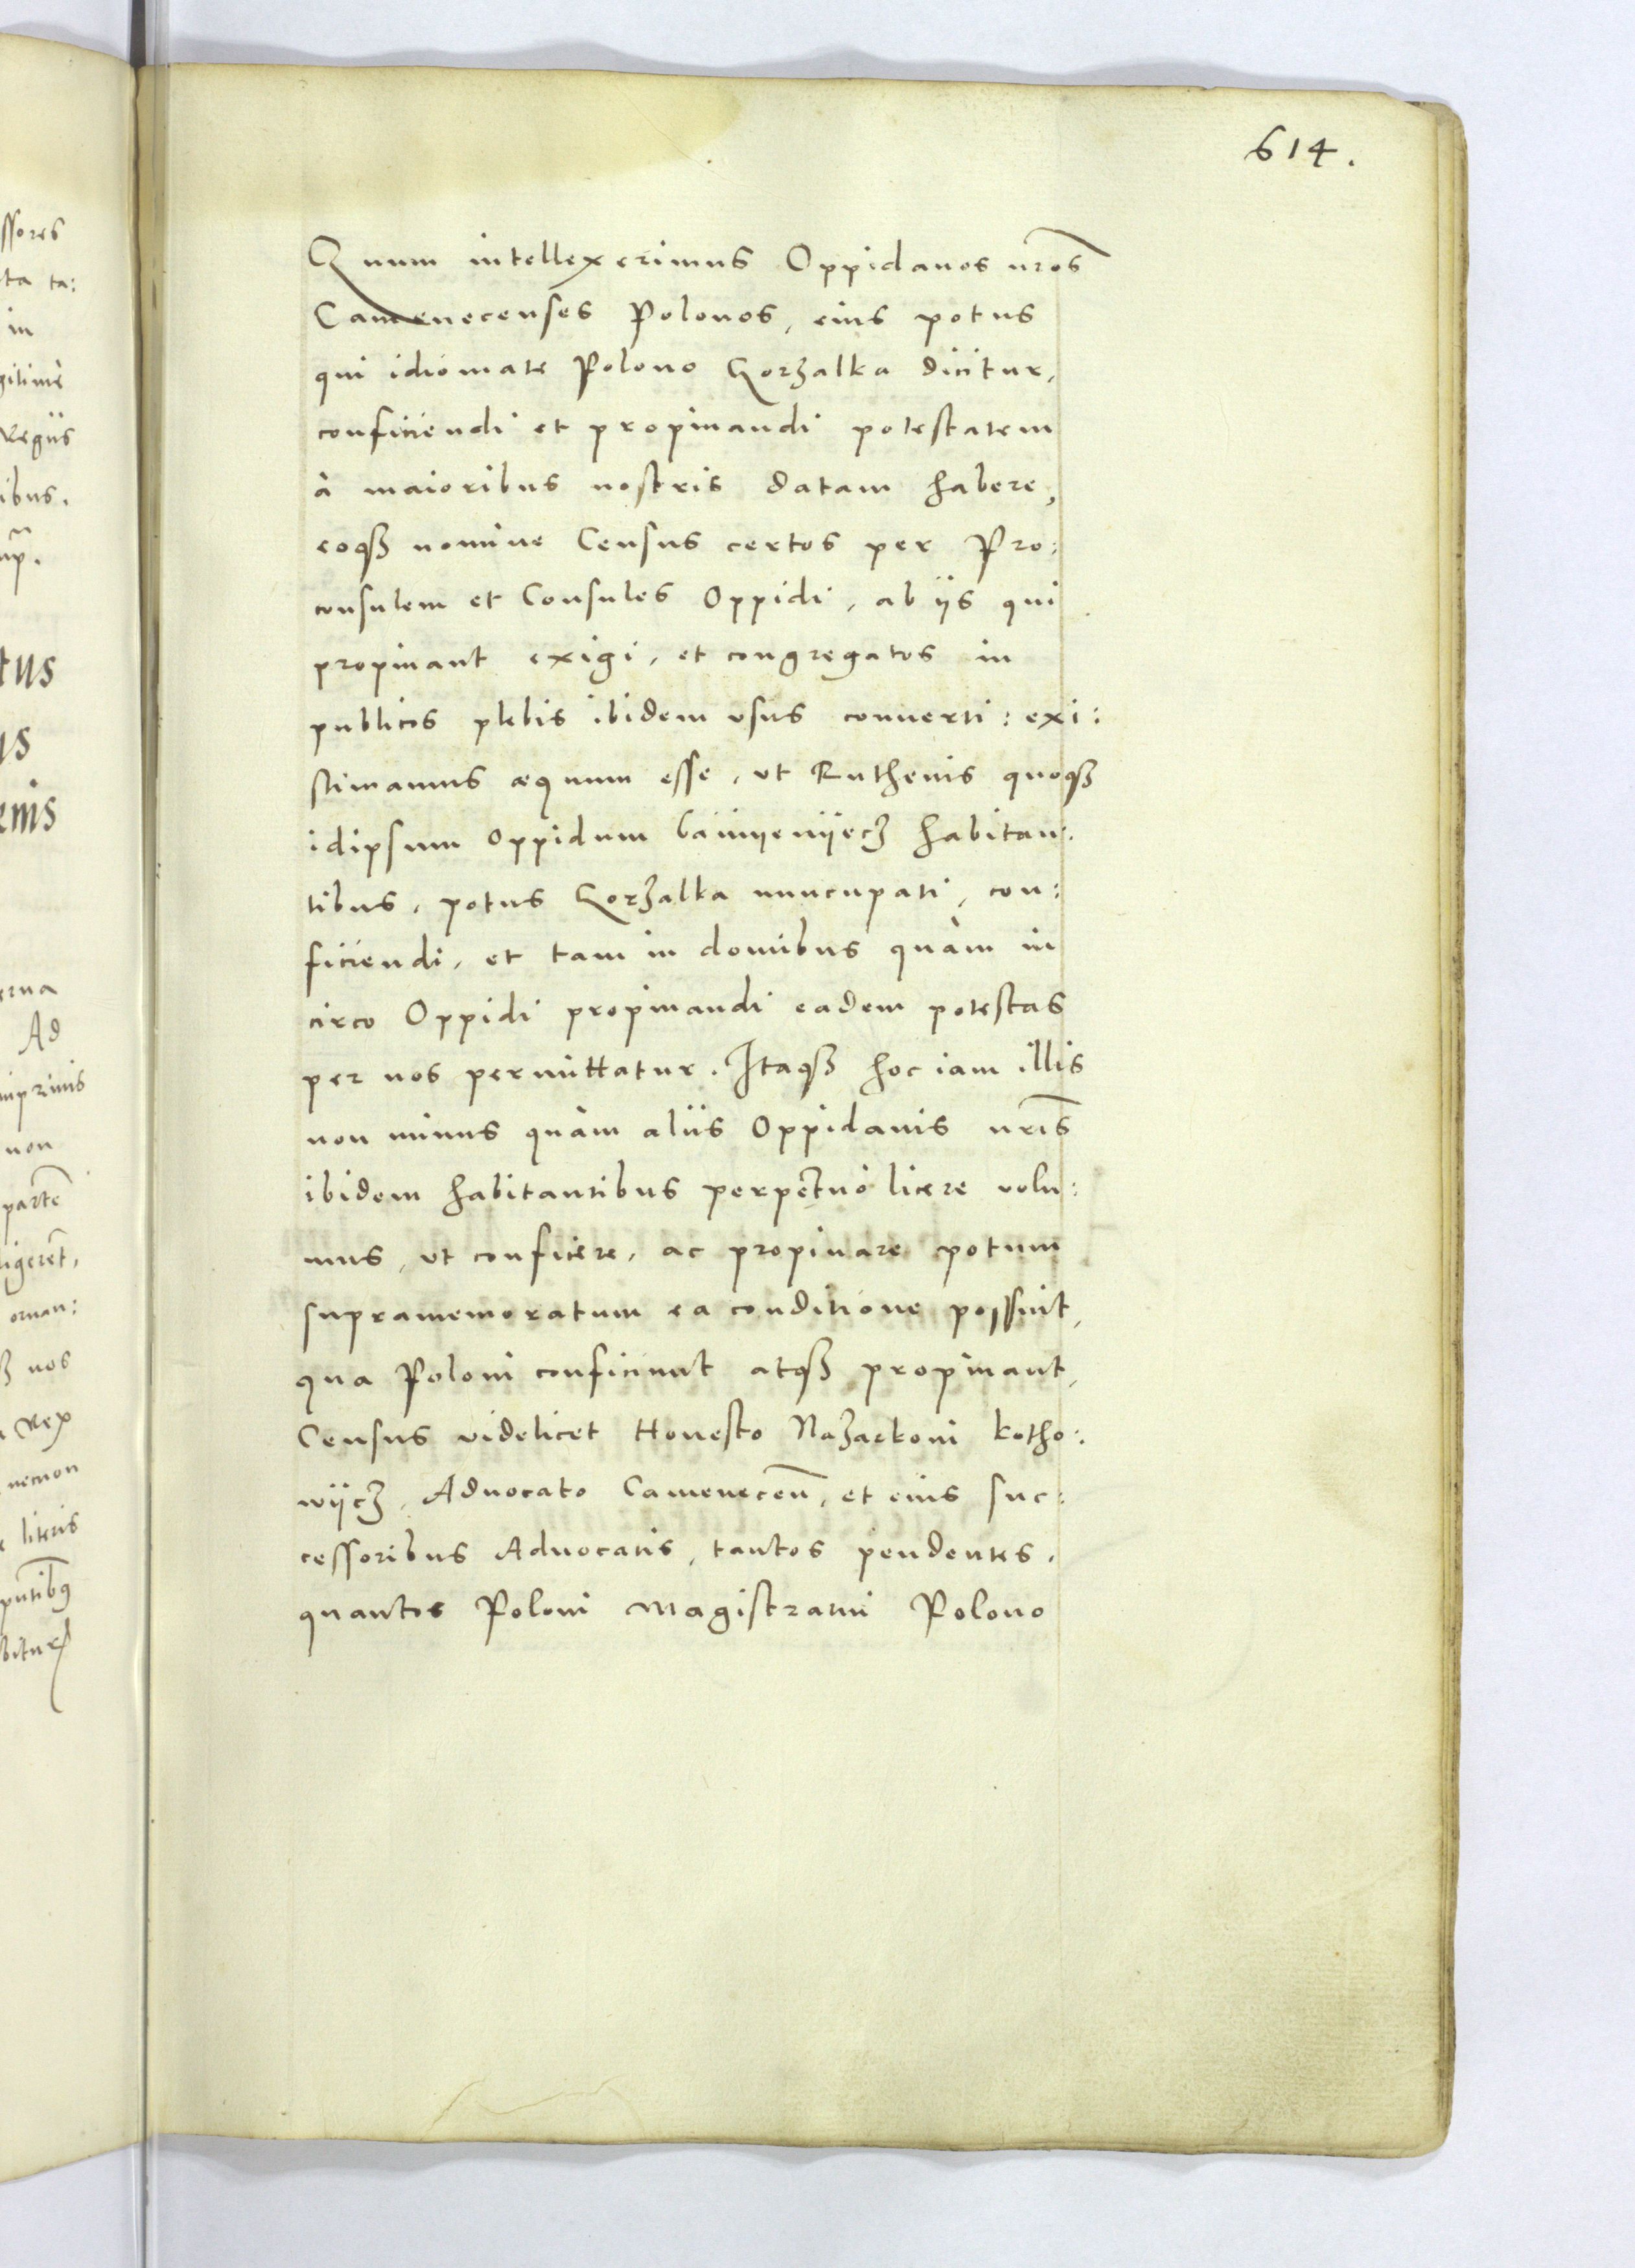 614.
Quum intellexerimus Oppidanos nr̃os
Camenecenses Polonos, eius potus
qui idiomate Polono Gorzalka dicitur,
conficiendi et propinandi potestatem
à maioribus nostris datam habere,
eoqꝫ nomine Census certos per Pro:
consulem et Consules Oppidi, ab ijs qui
propinant exigi, et congregatos in
publicos plebis ibidem vsus conuerti: exi:
stimamus æquum esse, vt Ruthenis quoqꝫ
idipsum Oppidum Camyenyecz habitan:
tibus, potus Gorzalka nuncupati, con:
ficiendi, et tam in domibus quàm in
circo Oppidi propinandi eadem potestas
per nos permittatur. Itaqꝫ hoc iam illis
non minus quàm alijs Oppidanis nr̃is
ibidem habitantibus perpetuò licere volu:
mus, vt conficere, ac propinare potum
supramemoratum ea conditione possint,
qua Poloni conficiunt atqꝫ propinant,
Census videlicet Honesto Nazarkoni Kotho:
wijcz, Aduocato Camenecen̄, et eius suc:
cessoribus Aduocatis, tantos pendentes,
quantos Poloni Magistratui Polono
ssores
ta ta:
in
gitimè
Regijs
ibus.
tus
us
enis
erna
Ad
imprimis
non
partẽ
igerẽt,
ornan:
nos
Rex
necnon
literis